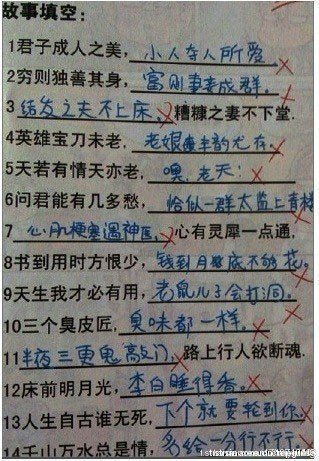 故事填空:
1君子成人之美,小人夺人所爱。
2穷则独善其身,富则妻妾成群。
3结发之夫不上床,糟糠之妻不下堂.
4英雄宝刀未老,老娘丰韵尤存。
5天若有情天亦老,噢,老天!
6问君能有几多愁,恰似一群太监上青楼
7心肌梗塞遇神医,心有灵犀一点通,
8书到用时方恨少,钱到月底不够花。
9天生我才必有用,老鼠儿子会打洞。
10三个臭皮匠,臭味都一样。
11半夜三更鬼敲门,路上行人欲断魂.
12床前明月光,李白睡得香。
13人生自古谁无死,下个就要轮到你。
14千山万水总是情,多给一分行不行。